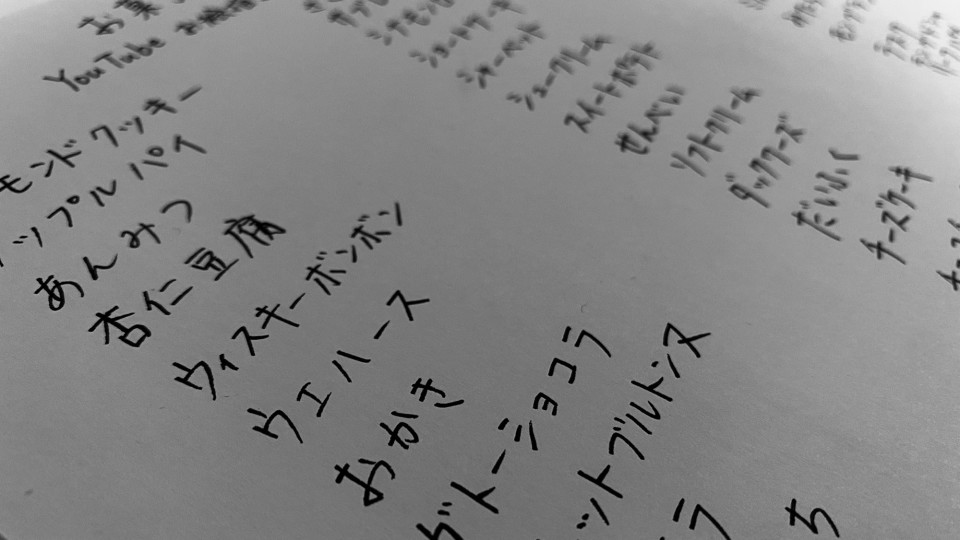 お菓
YouTube お
モンドクッキー
ップルパイ
あんみつ
杏仁豆腐
ウィスキーボンボン
ウエハース
おかき
ガトーショコラ
ットブルトンヌ
ラ
ち
シナモン
ショートケーキ
シャーベット
シュークリーム
スイートポテト
せんべい
ソフトクリーム
ダックワーズ
だいふく
チーズケーキ